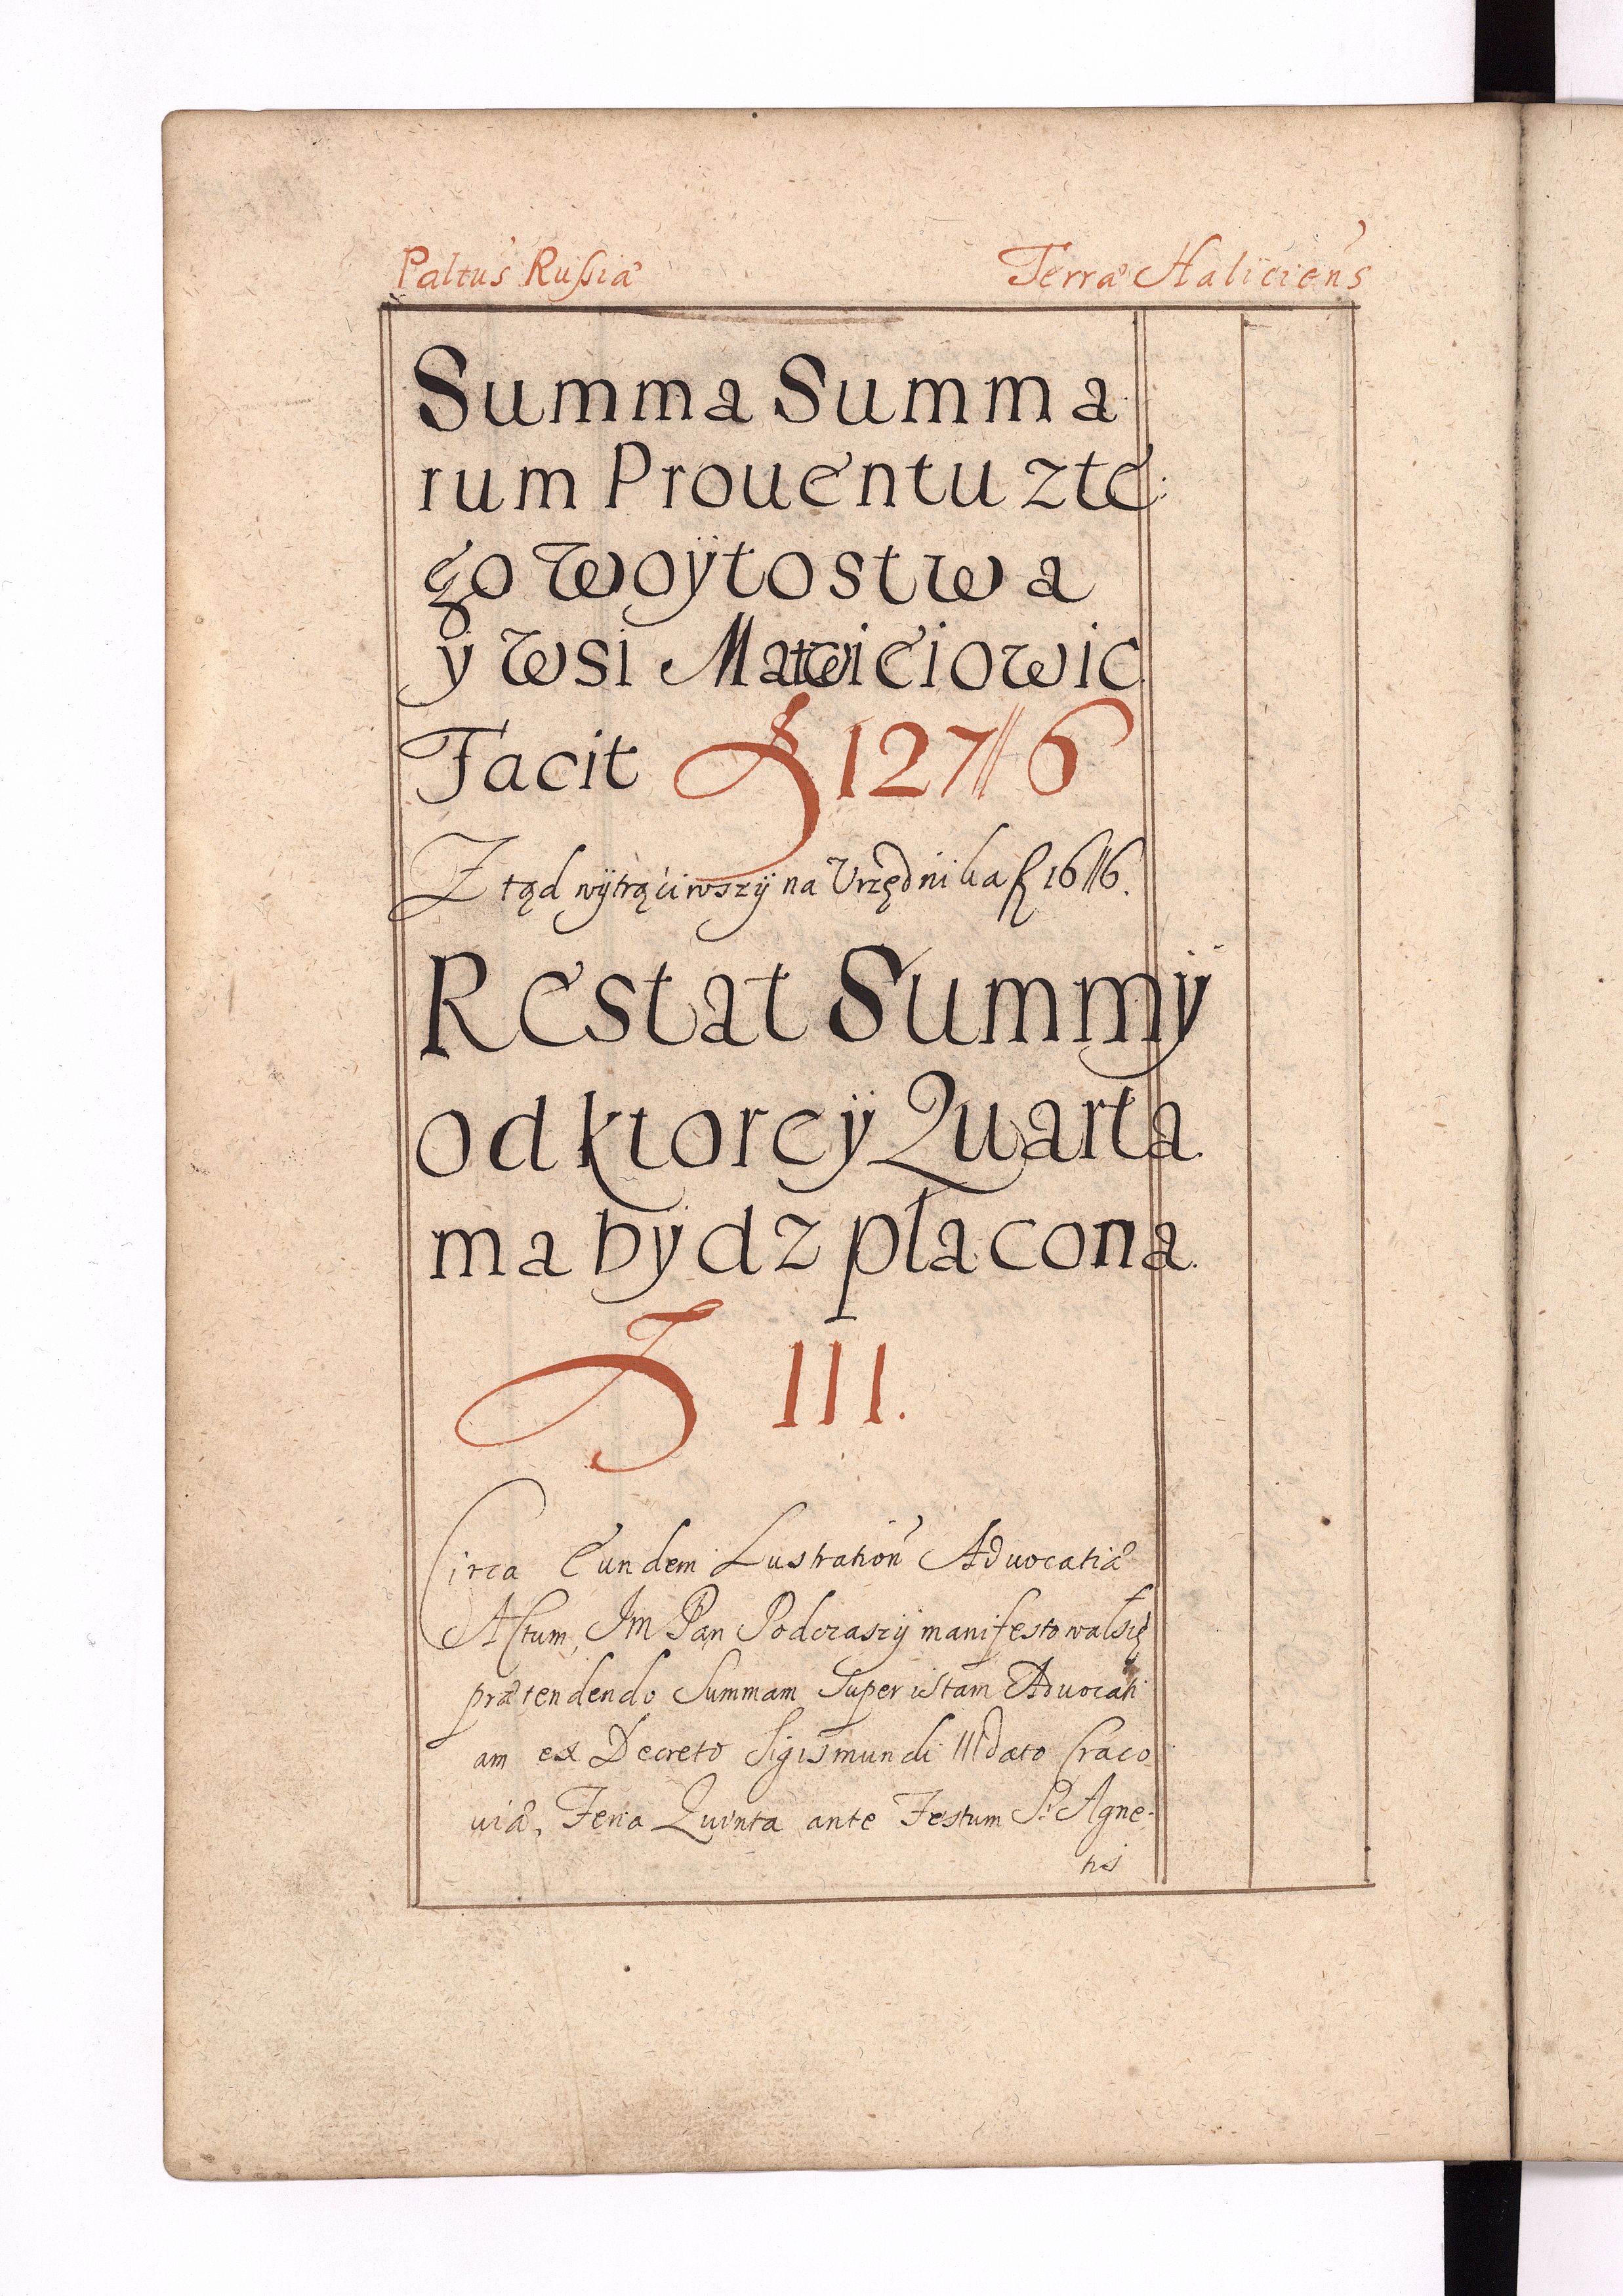 Paltus Rußiæ Terræ Haliciens
Summa Summa
rum Prouentu z te:
go Woÿtostwa
y Wsi Matwieiowic
Facit f 127//6
Ztąd wÿtrąciwszÿ na Vrzędnika fl 16//6.
Restat Summÿ
od ktoreÿ Quarta.
ma bÿdz płacona.
f 111.
Circa Eundem Lustration Aduocatiæ
Actum, Jm Pan Podczaszÿ manifestowałsię
prætendendo Summam super istam Aduocati
am ex Decreto Sigismundi III dato Craco
uiæ, Feria Quinta ante Festum S: Agne-
tis